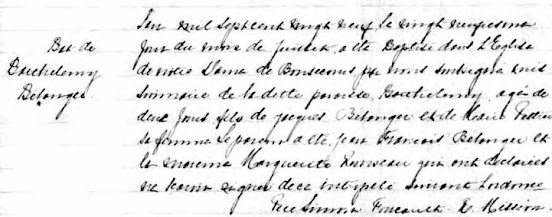 Bat de
Barthelemy
Belanger
L'an mil sept cent vingt neuf, le vingt neuviesme
Jour du mois de juillet, a ete Baptisé dans L'Eglise
de notre Dame de Bonsecours, par nous soubsigné mis
sionnaire de la ditte paroisse, Barthelemy, agée de
deux jours fils de jacques Belanger et de Marie
sa femme Le parein a ete, jean François Belanger et
la mareine Marguerite Rousseau qui ont declarés
ne savoir signer de ce interpelé suivant L'ordonce
Foucault P. Mission.